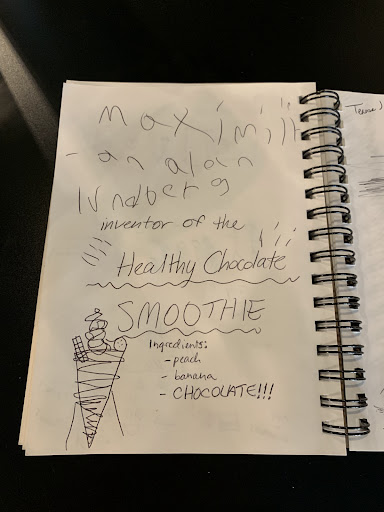 maximili
-an alan
lundberg
inventor of the
Healthy Chocolate
SMOOTHIE
Ingredients:
- peach
- banana
- CHOCOLATE!!!